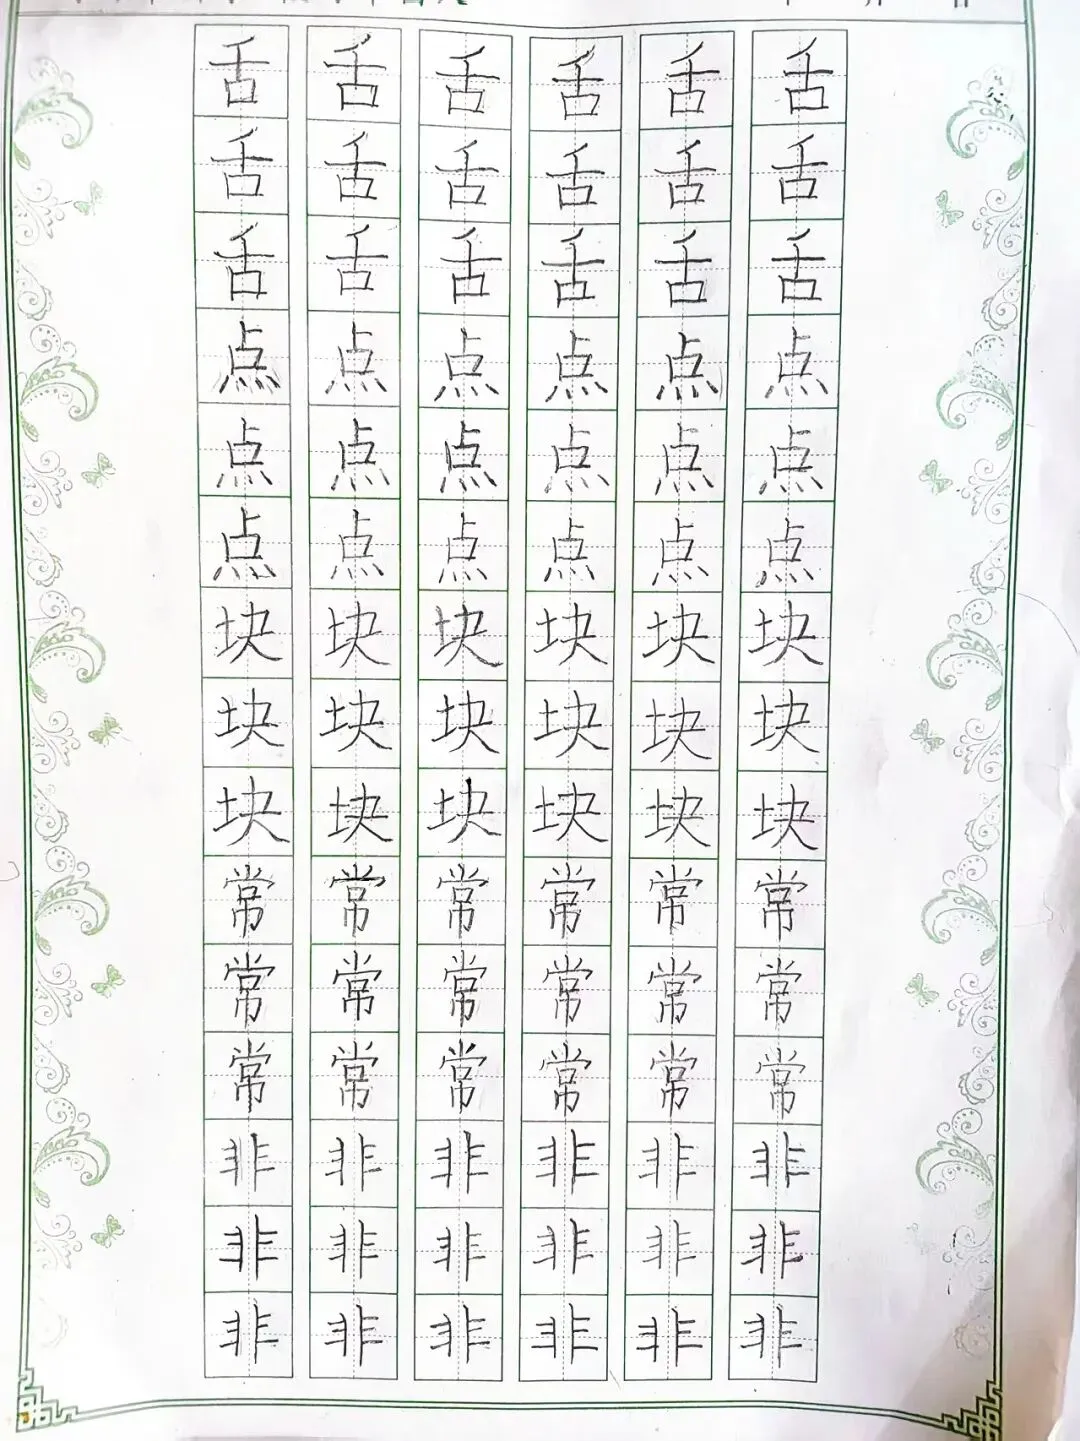 舌 舌 舌 舌 舌 舌
舌 舌 舌 舌 舌 舌
舌 舌 舌 舌 舌 舌
点 点 点 点 点 点
点 点 点 点 点 点
点 点 点 点 点 点
块 块 块 块 块 块
块 块 块 块 块 块
块 块 块 块 块 块
常 常 常 常 常 常
常 常 常 常 常 常
常 常 常 常 常 常
非 非 非 非 非 非
非 非 非 非 非 非
非 非 非 非 非 非